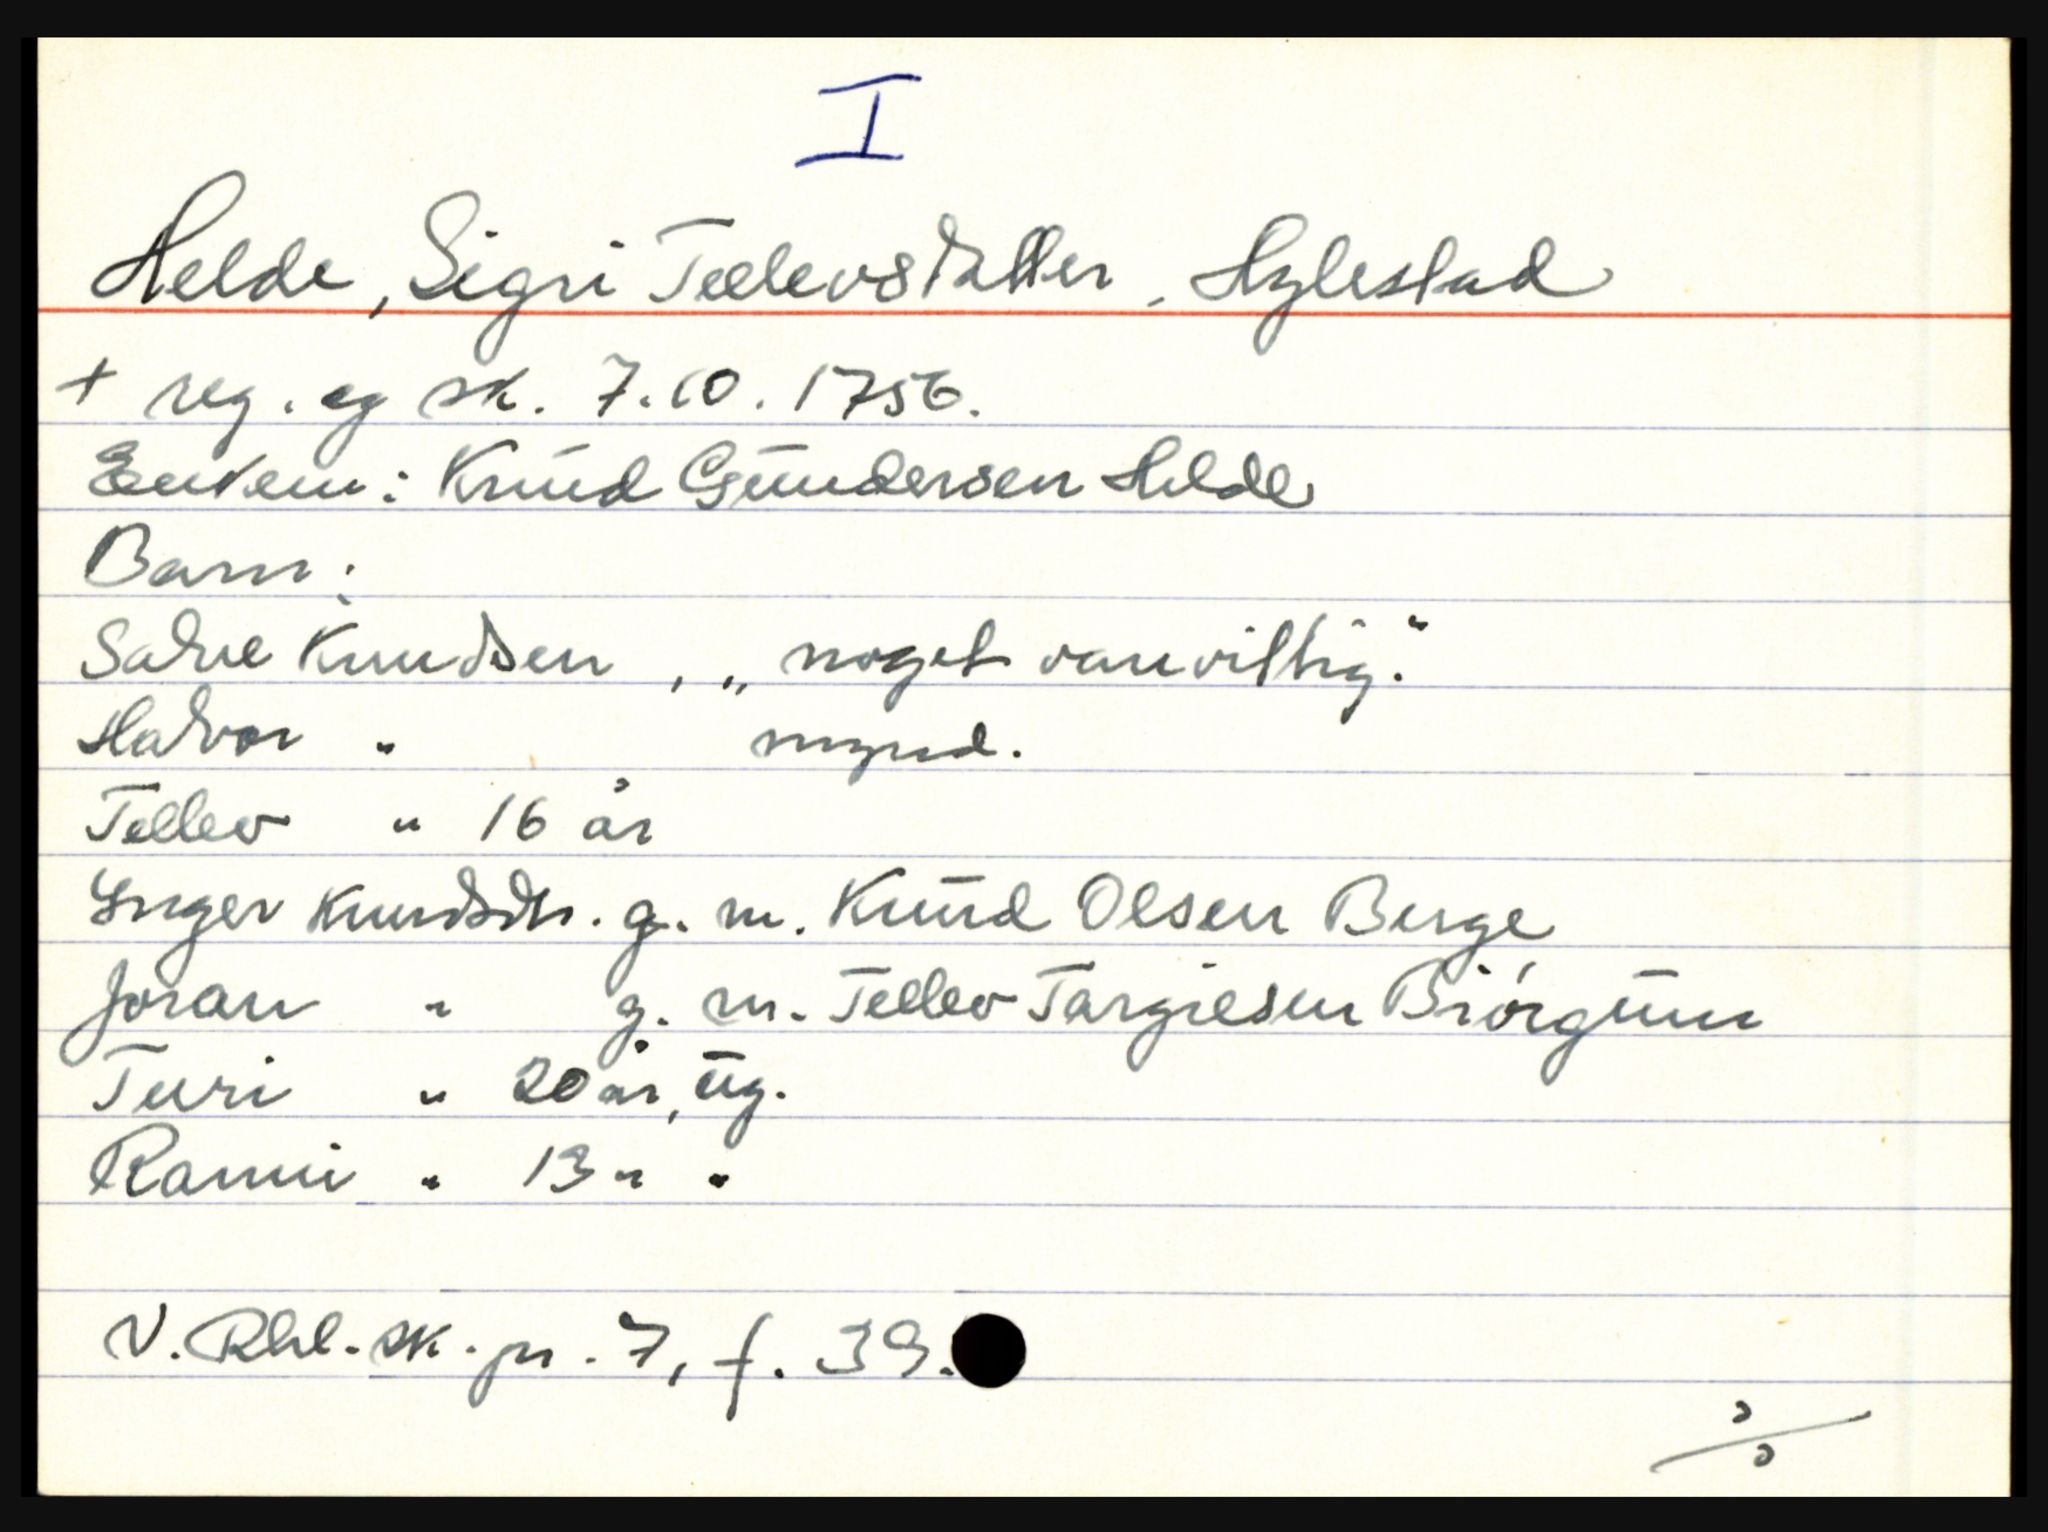 I
Helde, Sigri Tellevsdatter, Hylestad
+ reg. og sk. 7.10.1756.
Enkem: Knud Gundersen Helde
Barn:
Salve Knudsen, „noget vanvittig."
Halvor " mynd.
Tellev " 16 år
Inger Knudsdtr. g. m. Knud Olsen Berge
Joran " g. m. Tellev Targiesen Biørgum
Turi " 20 år, ug.
Ranni " 13 " "
V. Rbl. sk. pr. 7, f. 39.